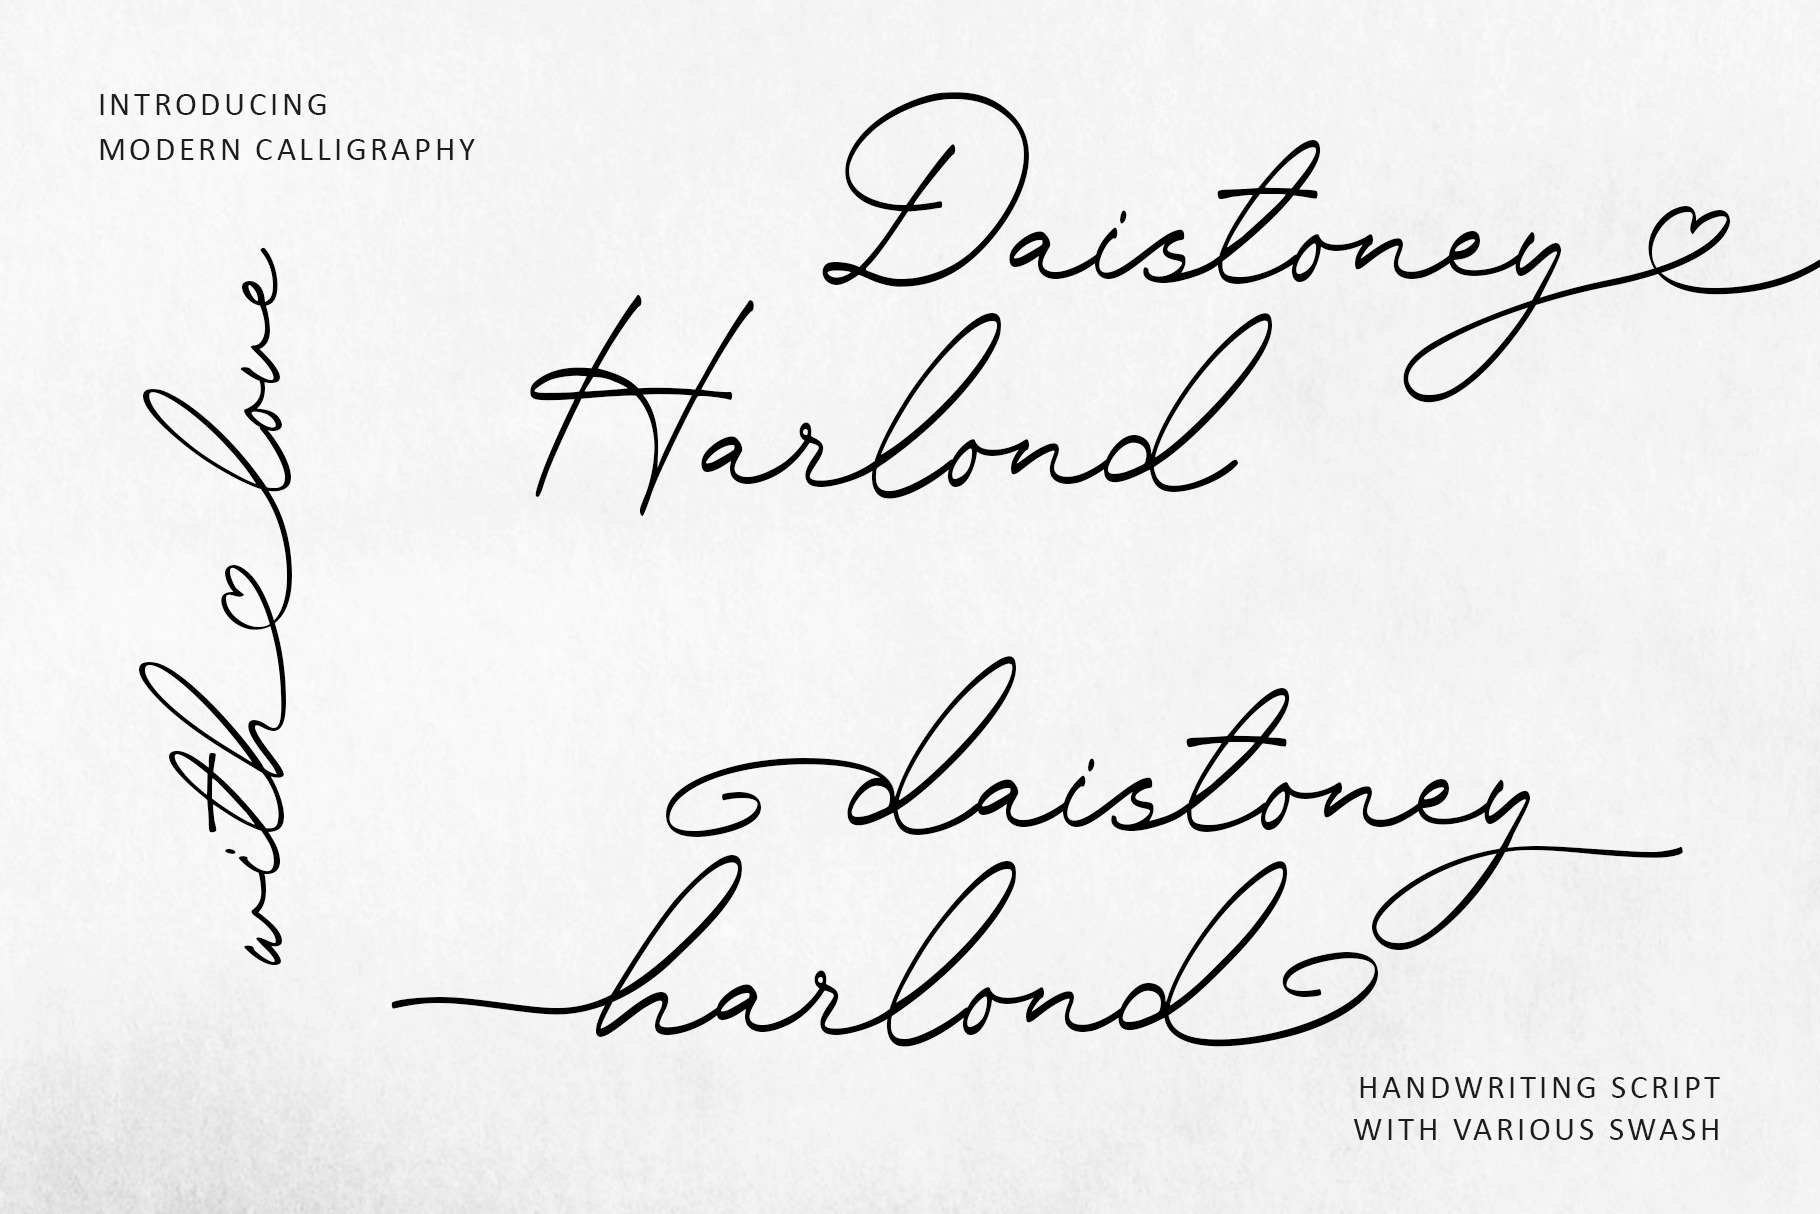 INTRODUCING
MODERN CALLIGRAPHY
Daistoney
Harlond
with love
daistoney
harlond
HANDWRITING SCRIPT
WITH VARIOUS SWASH